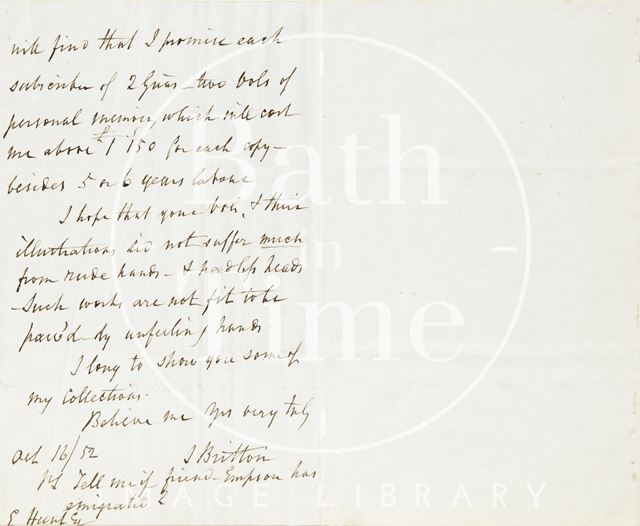 will find that I promise each
subscriber of 2 Guas - two vols of
personal memoir, which will cost
me above £1 " 50 for each copy -
besides 5 or 6 years labour
I hope that your vols, & their
illustrations did not suffer much
from rude hands - & needless heads
- Such works are not fit to be
paw'd by unfeeling hands.
I long to show you some of
my Collections.
Believe me Yrs very truly
Oct 16/52
J Britton
PS Tell me if friend Empson has
emigrated?
E Hunt Esq
Bath in Time
IMAGE LIBRARY